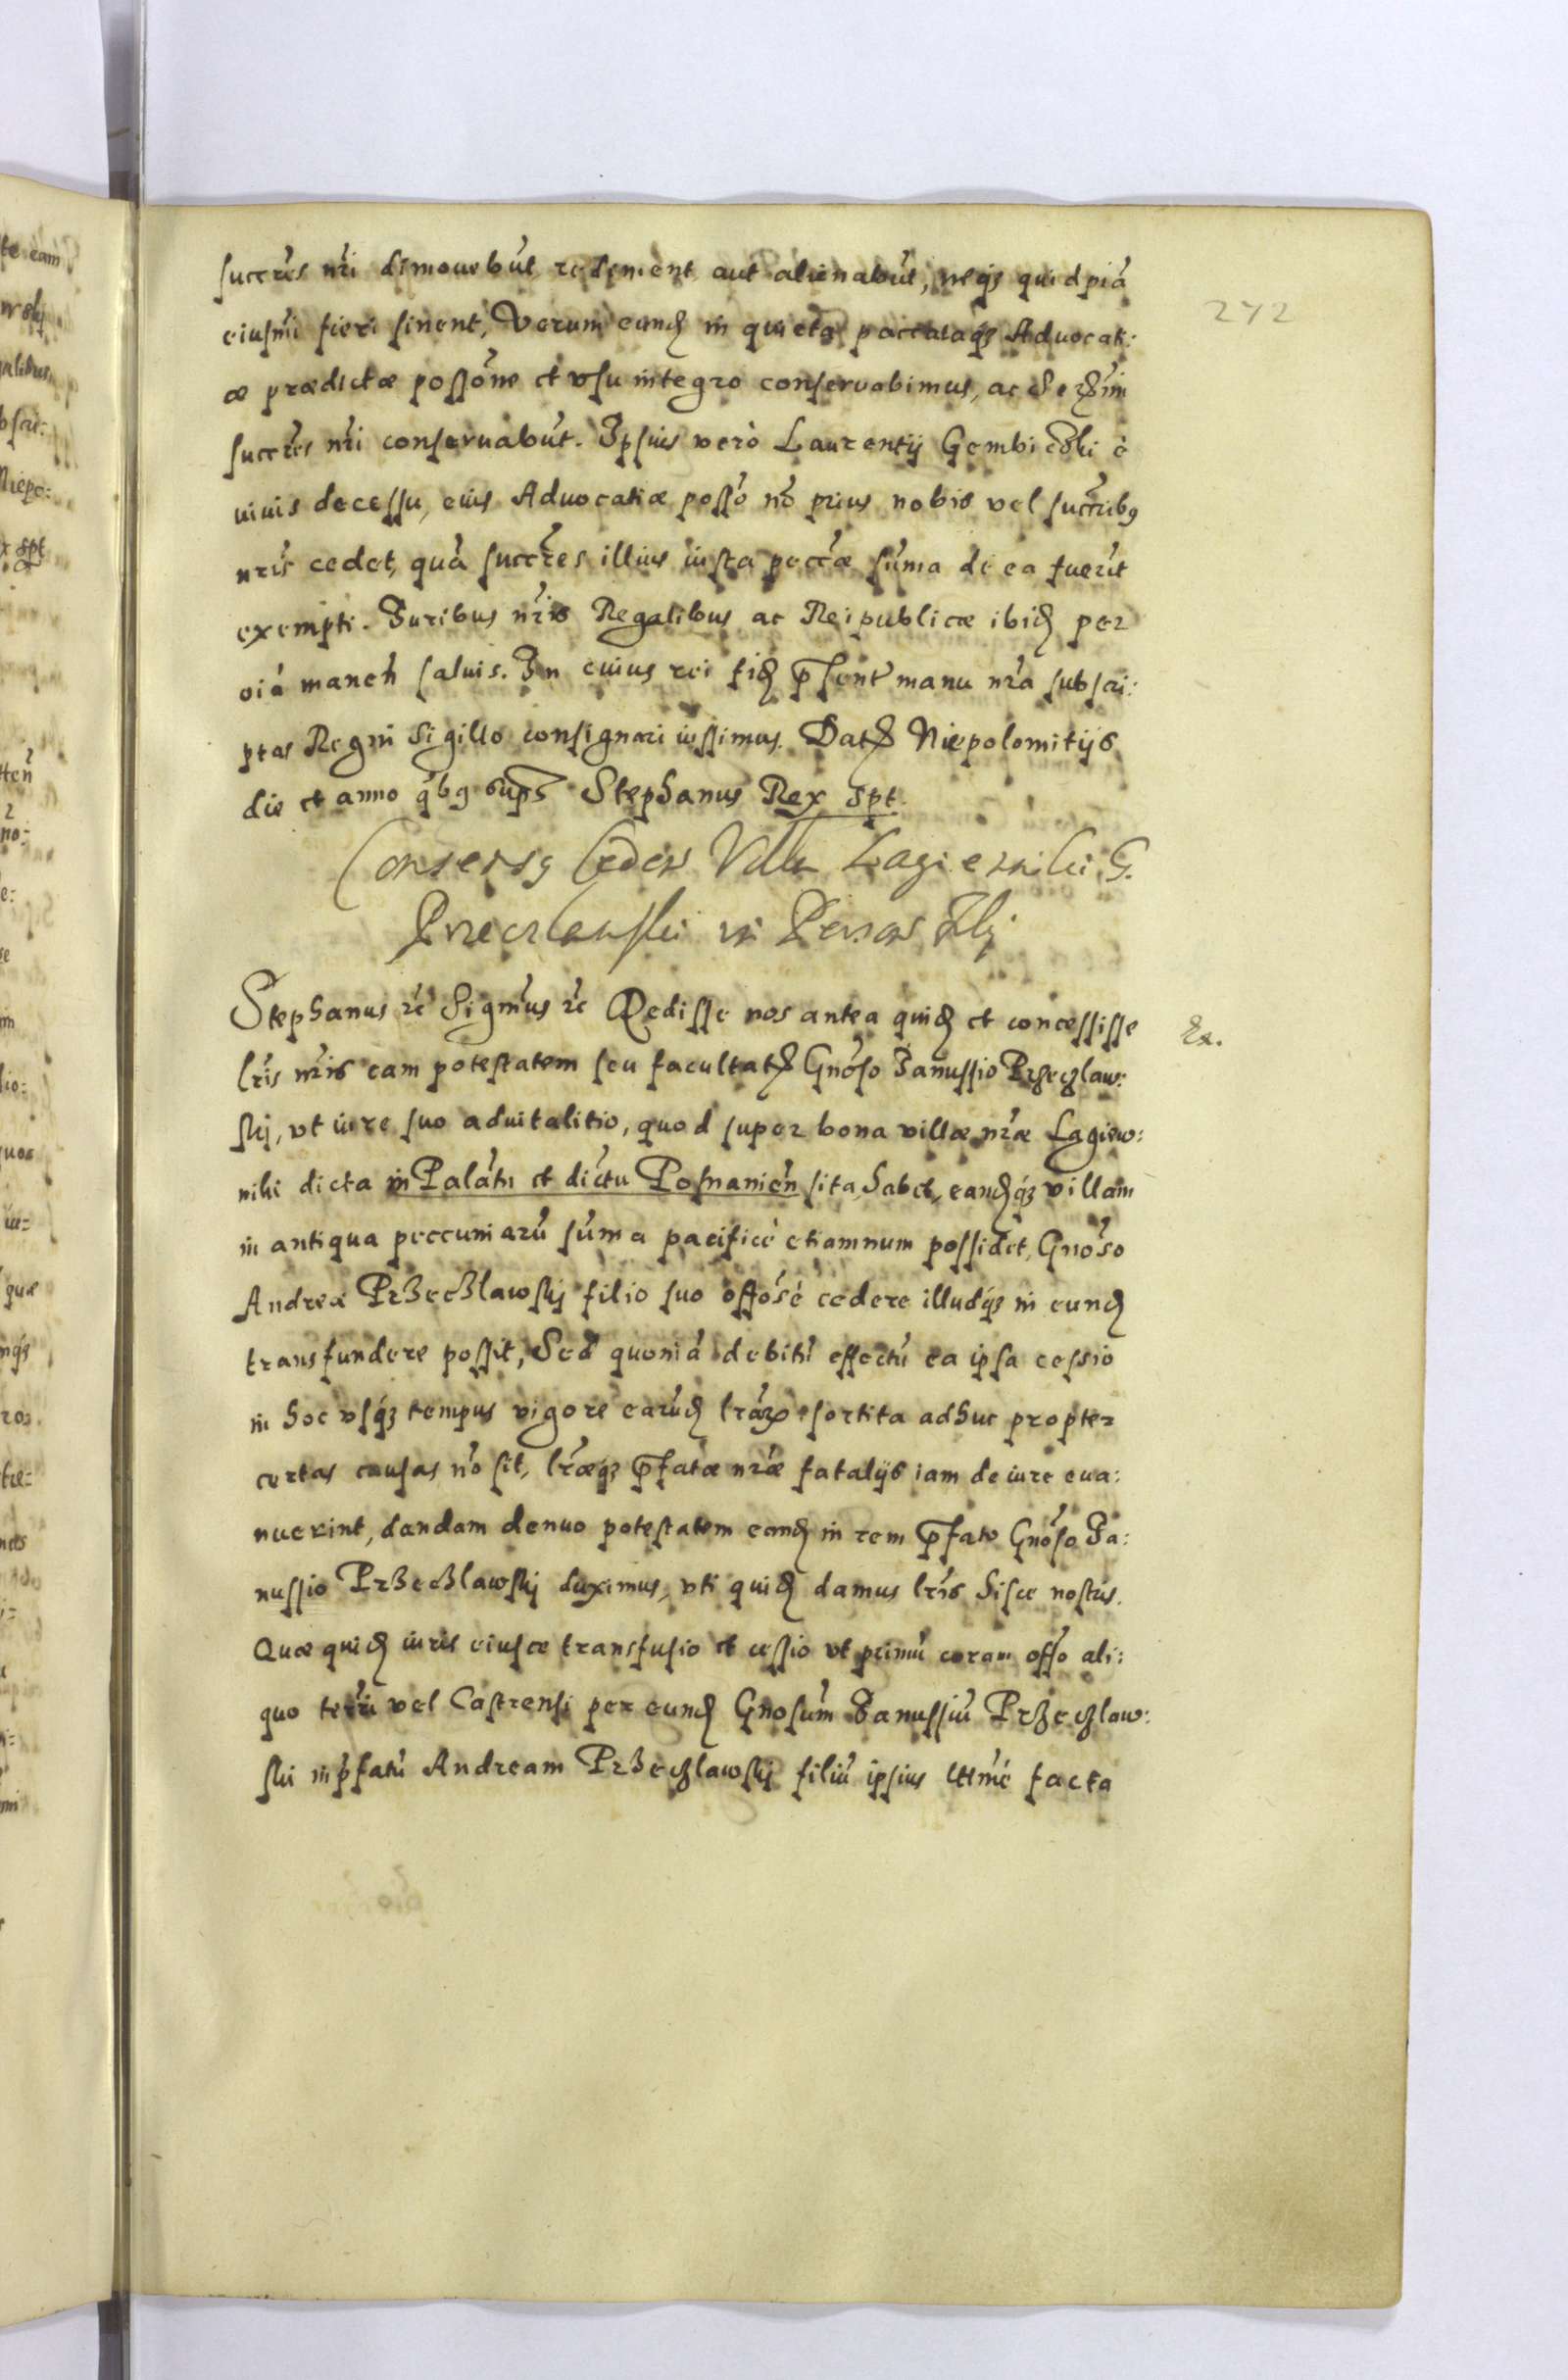 272
succr̃es nr̃i dimouebũt redement aut alienabũt, neqꝫ quidpiã
eiusm̃i fieri sinent, Verum eand in quieta paccataqꝫ Aduocati:
æ prædictæ possõne et vsu integro conseruabimus, ac Ser̃mi
succr̃es nr̃i conseruabũt. Ipsius verò Laurentij Gembiczki è
viuis decessu, eius Aduocatiæ possõ nõ prius nobis vel succr̃ibꝯ
nr̃is cedet, quã succr̃es illius iusta peccũæ sũma de ea fuerĩt
exempti. Iuribus nr̃is Regalibus ac Reipublicæ ibid per
oĩa manen̄ saluis. In cuius rei fid p̄sent̃ manu nr̃a subscri:
ptas Regni Sigillo consignari iussimus. Dat Niepolomitijs
die et anno qͥbꝯ supͣ Stephanus Rex Spt.
Consensꝯ Ceden Villa Lagiewniki G.
Przeczlawski in Person Filij
Stephanus rc̃ Signm̃us rc̃ Dedisse nos antea quid et concessisse
Ex.
lr̃is nr̃is eam potestatem seu facultat Gnõso Janussio Przeczlaw:
skj, vt iure suo aduitalitio, quod super bona villæ nr̃æ Lagiew:
niki dicta in Palãtu et dic̃tu Posnanień sita, habet, eandqꝫ villam
in antiqua peccuniarũ sũma pacificè etiamnum possidet, Gnõso
Andreæ Przeczlawskj filio suo offõsè cedere illudqꝫ in eund
transfundere possit, Sed quoniã debitũ effectũ ea ipsa cessio
in hoc vsqꝫ tempus vigore earũd lr̃aꝝ sortita adhuc propter
certas causas nõ sit, lr̃æqꝫ p̄fatæ nr̃æ fatalijs iam de iure eua:
nuerint, dandam denuo potestatem eand in rem p̄fato Gnõso Ja:
nussio Przeczlawskj duximus, vti quid damus lr̃is hisce nostris.
Quæ quid iuris eiusce transfusio et cessio vt primũ coram offo ali:
quo terr̃i vel Castrensi per eund Gnosũm Janussiũ Przeczlaw:
ski in p̄fatũ Andream Przeczlawskj filiũ ipsius lttm̃é facta